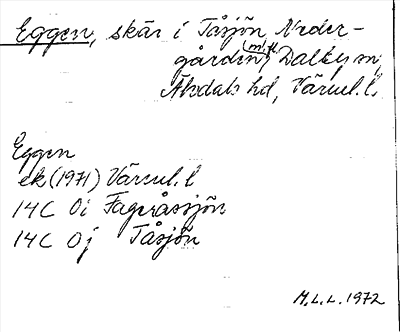 Eggen, skär i Tåsjön Neder-
gården (m fl) Dalby sn,
Älvdals hd, Värml. l.
Eggen
ek (1971) Värml. l
14C 0i Fageråssjön
14C 0j Tåsjön
M.L.L. 1972